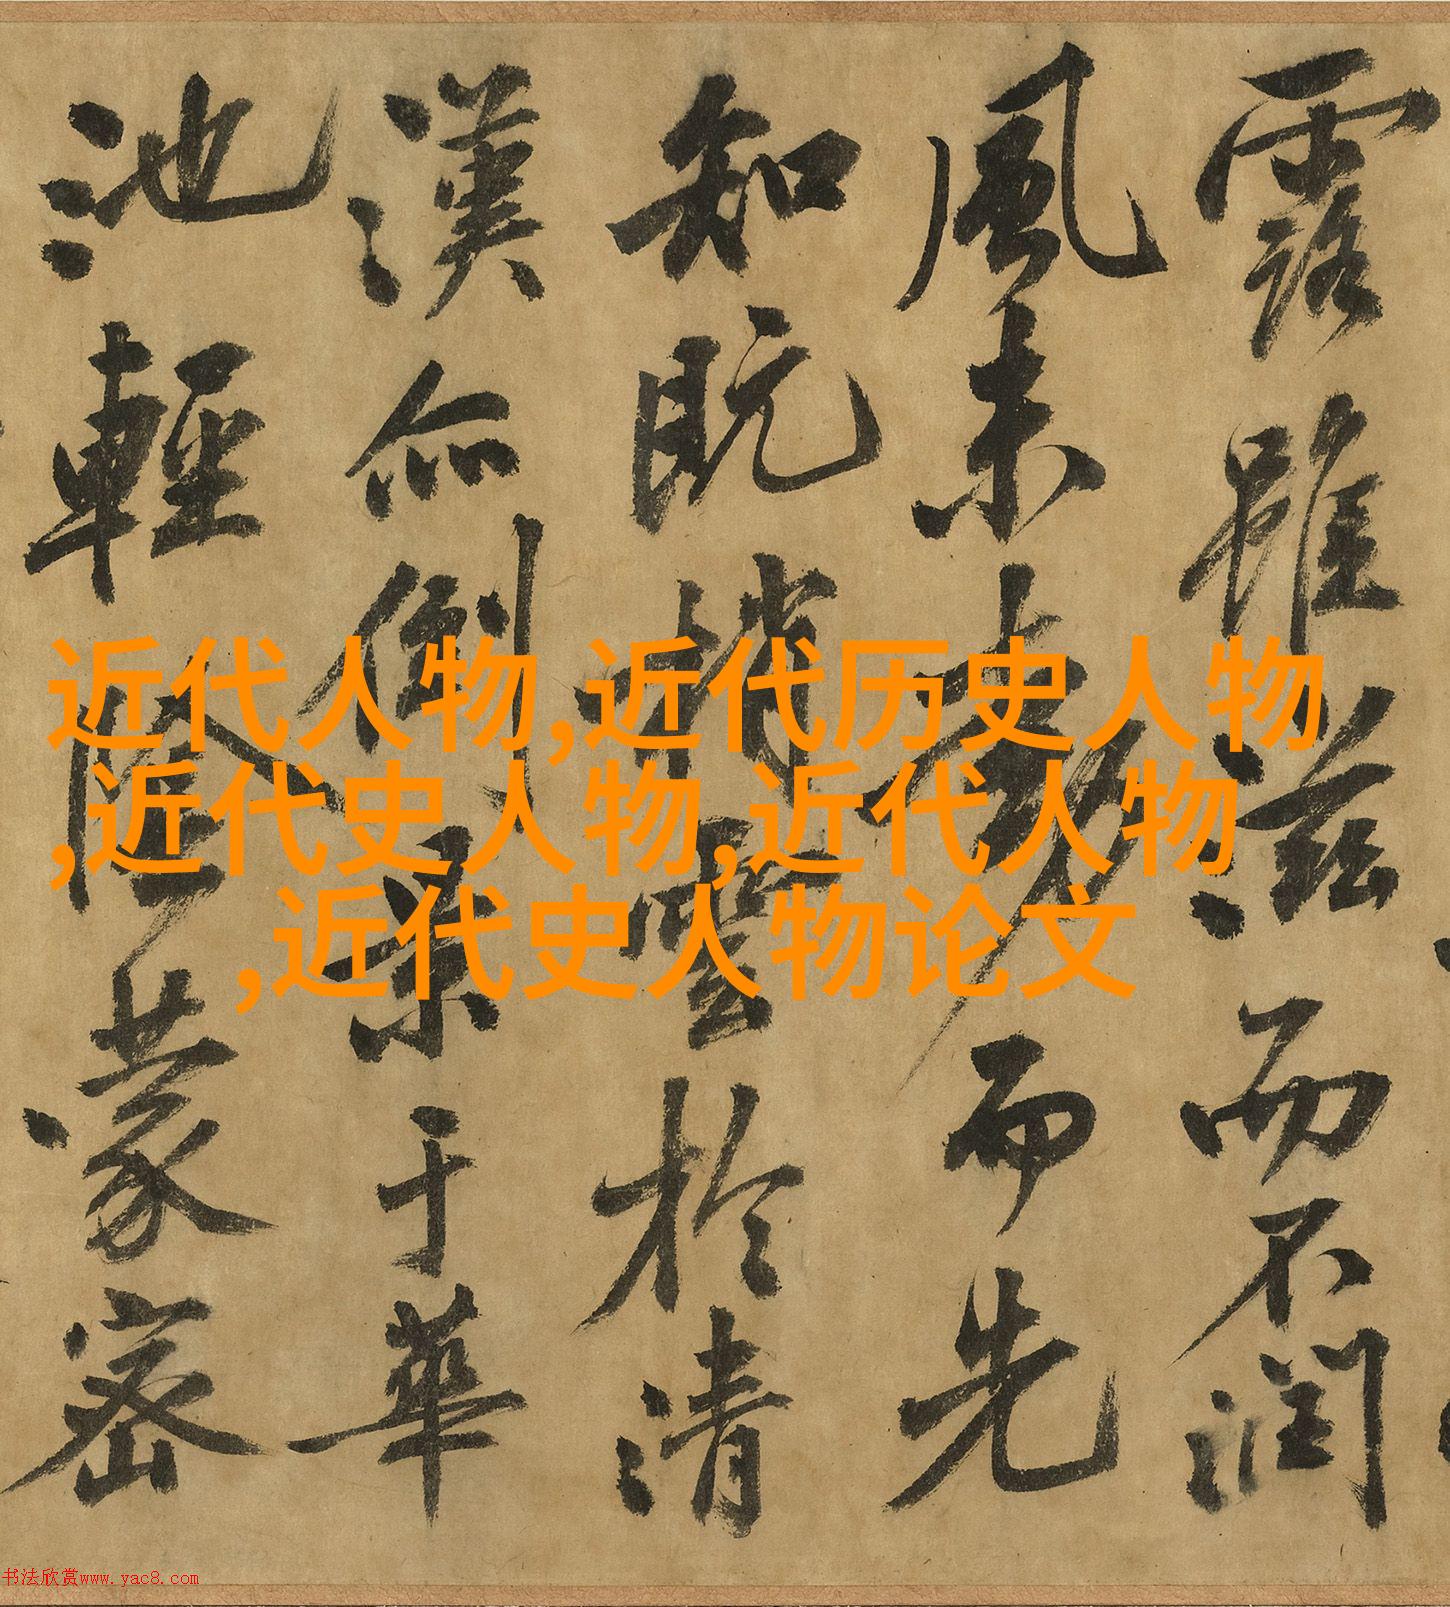 露雖滋而不潤
風未動而先
知既峭雲於清
漢亦倒景于華
池輕陰蒙密
近代人物,近代历史人物
,近代史人物,近代人物
,近代史人物论文
书法欣赏www.yac8.com